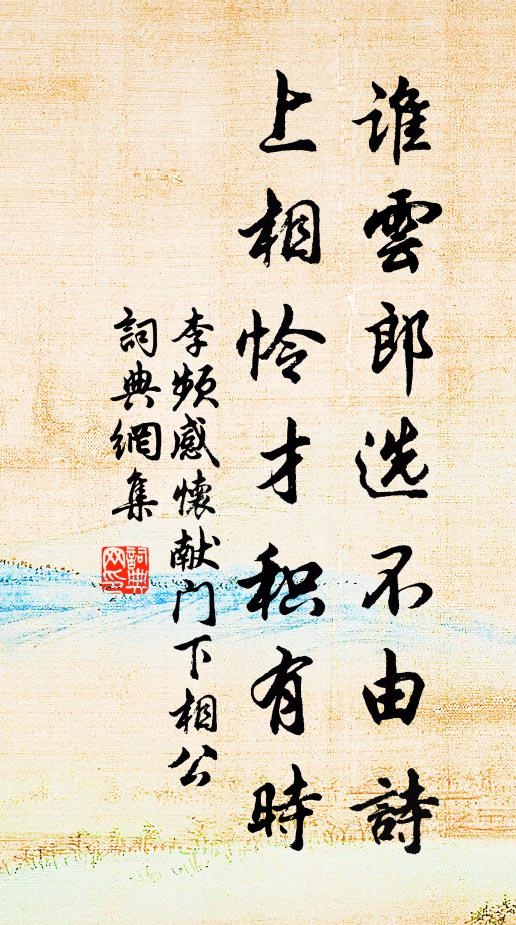 誰雲郎选不由詩
上相怜才积有時
李频感懷献门下相公
詞典網集
詞典
网